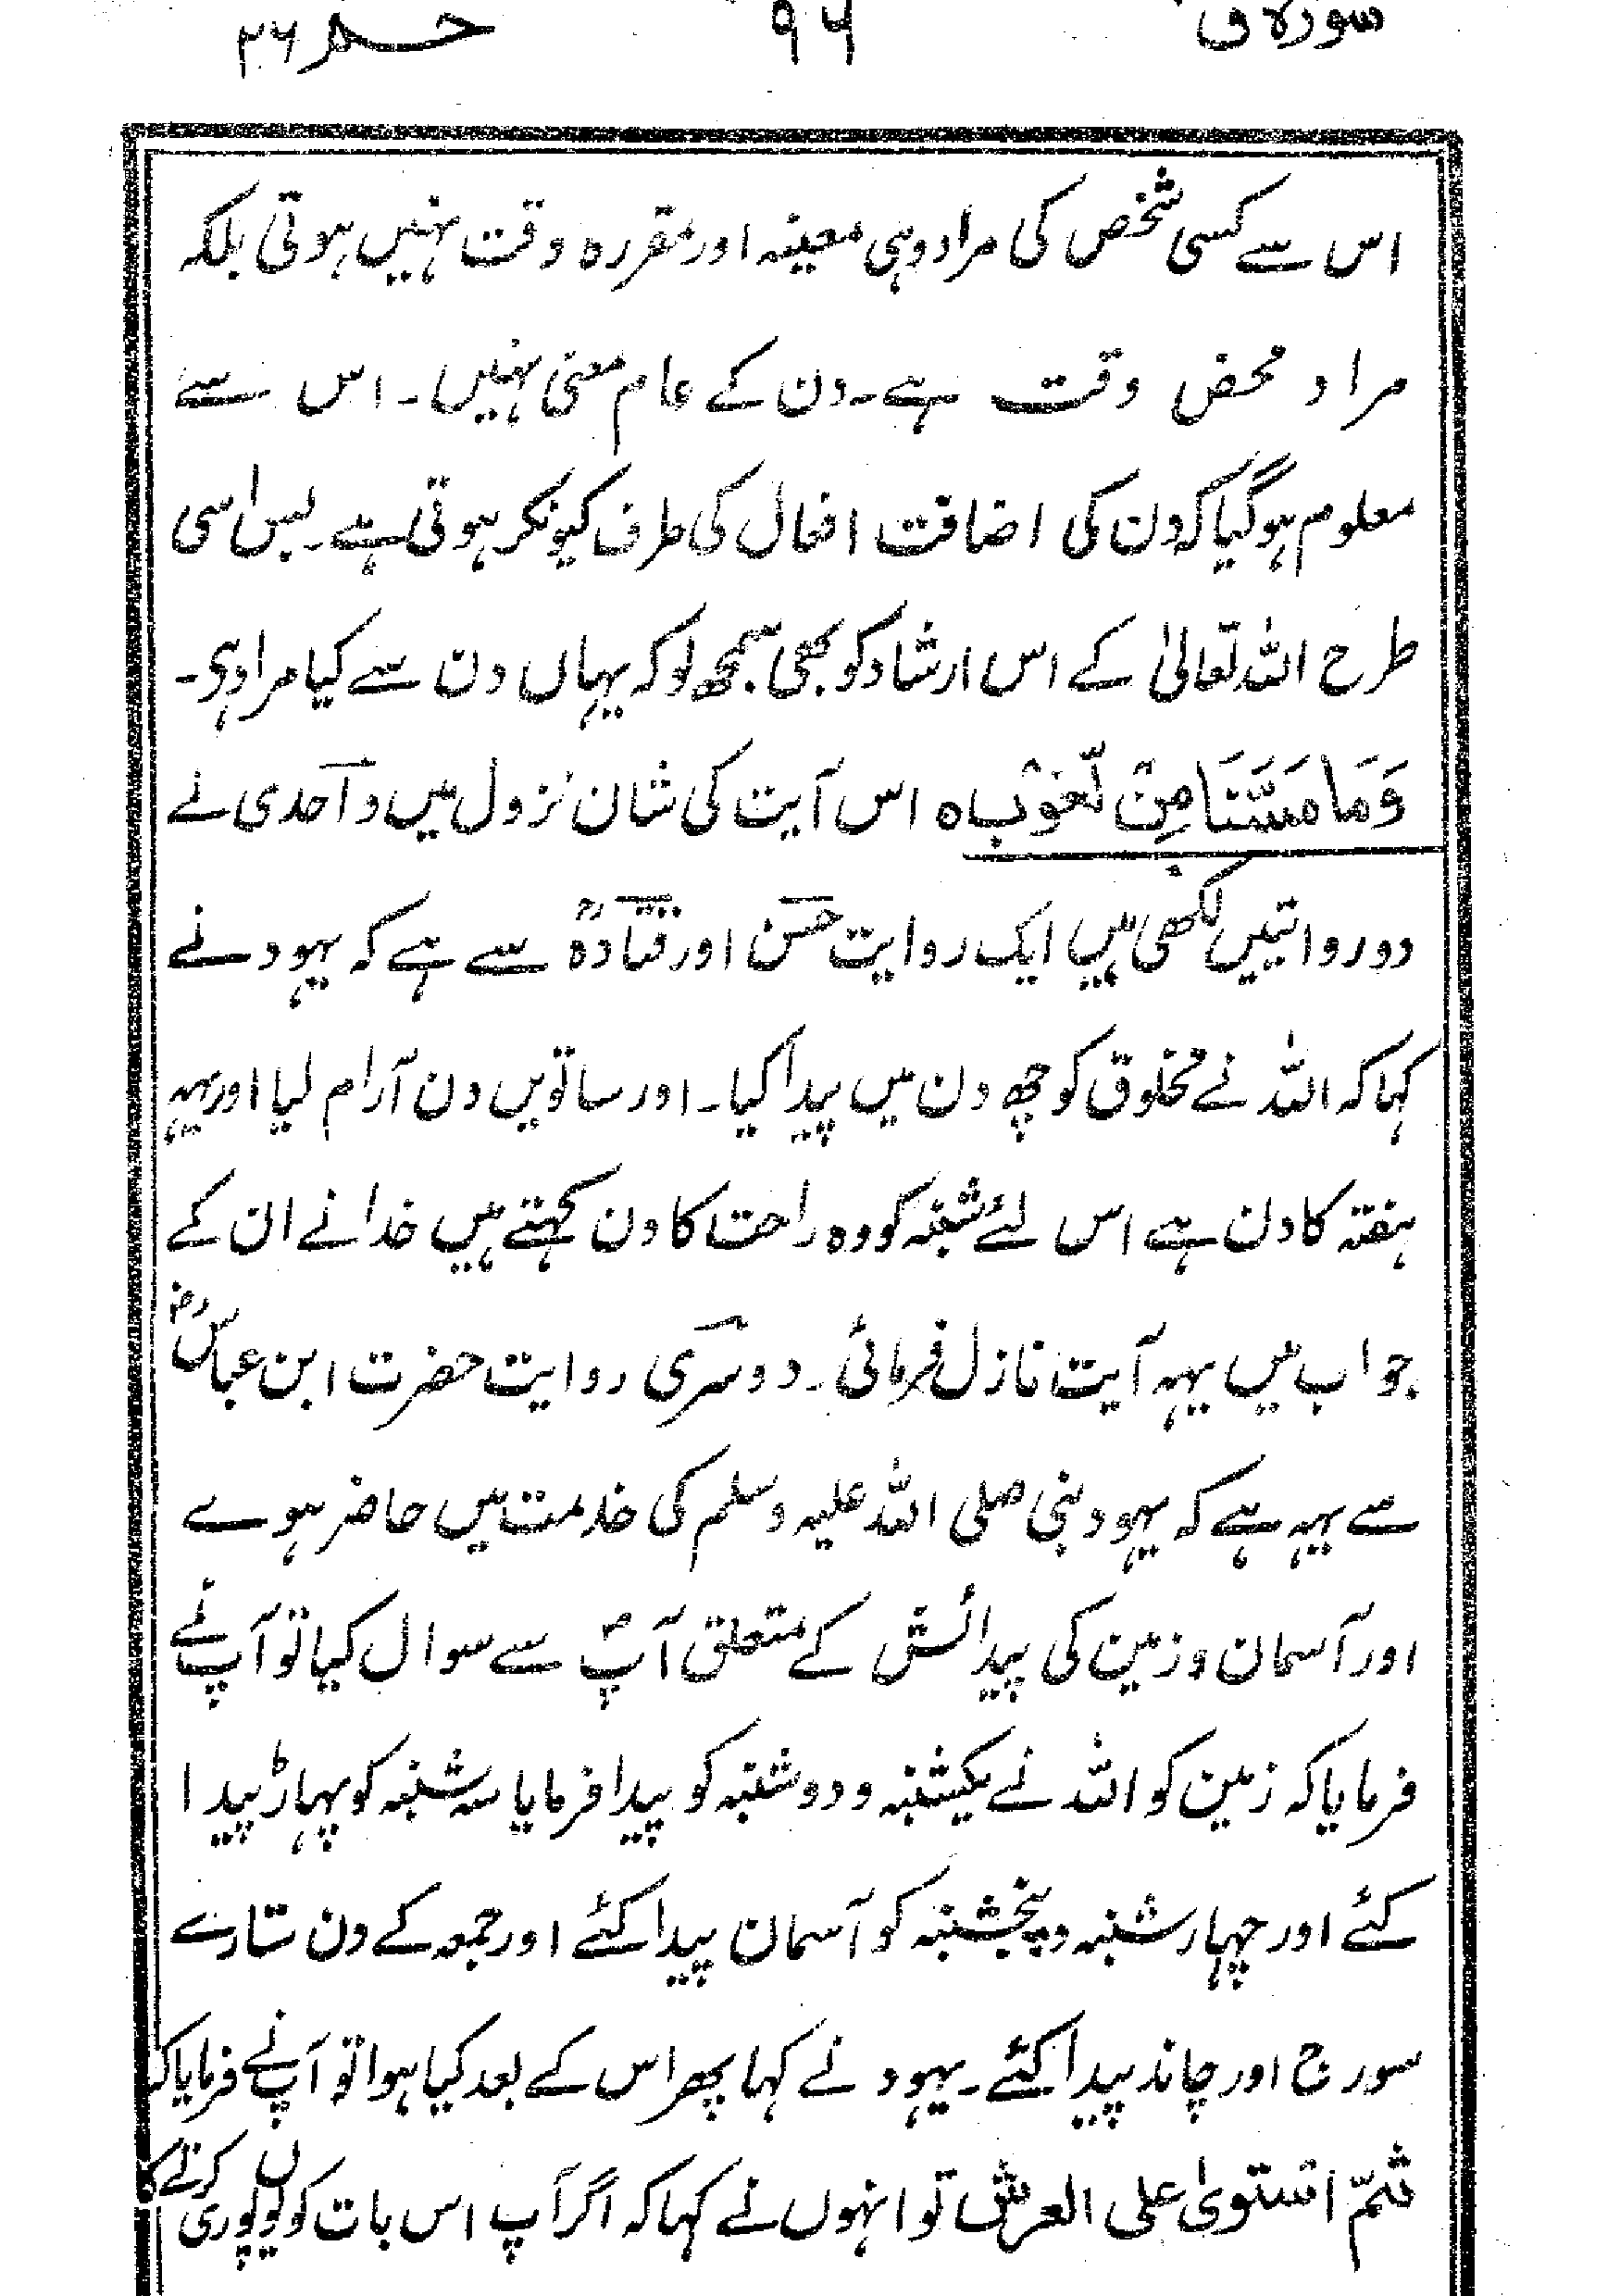 سورہ ق ۹۶ حم ۲۶
اس سے کسی شخص کی مراد وہی معینہ اور مقررہ وقت نہیں ہوتی بلکہ
مراد محض وقت ہے۔ دن کے عام معنی نہیں۔ اس سے
معلوم ہوگیا کہ دن کی اضافت افعال کی طرف کیونکر ہوتی ہے۔ بس اسی
طرح اللہ تعالیٰ کے اس ارشاد کو بھی سمجھ لو کہ یہاں دن سے کیا مراد ہی۔
وَمَا مَسَّنَا مِنْ لُّغُوْبٍ ہ اس آیت کی شان نزول میں واحدی نے
دو روائتیں لکھی ہیں ایک روایت حسن اور قتادہؒ سے ہے کہ یہود نے
کہا کہ اللہ نے مخلوق کو چھ دن میں پیدا کیا۔ اور ساتویں دن آرام لیا اور یہہ
ہفتہ کا دن ہے اس لئے شنبہ کو وہ راحت کا دن کہتے ہیں خدا نے ان کے
جواب میں یہہ آیت نازل فرمائی۔ دوسری روایت حضرت ابن عباسؓ
سے یہہ ہے کہ یہود نبی صلی اللہ علیہ وسلم کی خدمت میں حاضر ہوے
اور آسمان و زمین کی پیدائش کے متعلق آپؐ سے سوال کیا تو آپ نے
فرمایا کہ زمین کو اللہ نے یکشنبہ و دوشنبہ کو پیدا فرمایا سہ شنبہ کو پہاڑ پیدا
کئے اور چہار شنبہ و پنجشنبہ کو آسمان پیدا کئے اور جمعہ کے دن ستارے
سورج اور چاند پیدا کئے۔ یہود نے کہا پھر اس کے بعد کیا ہوا تو آپ نے فرمایا کہ
ثمّ استویٰ علی العرش تو انہوں نے کہا کہ اگر آپ اس بات کو یوں پوری کرتے کہ